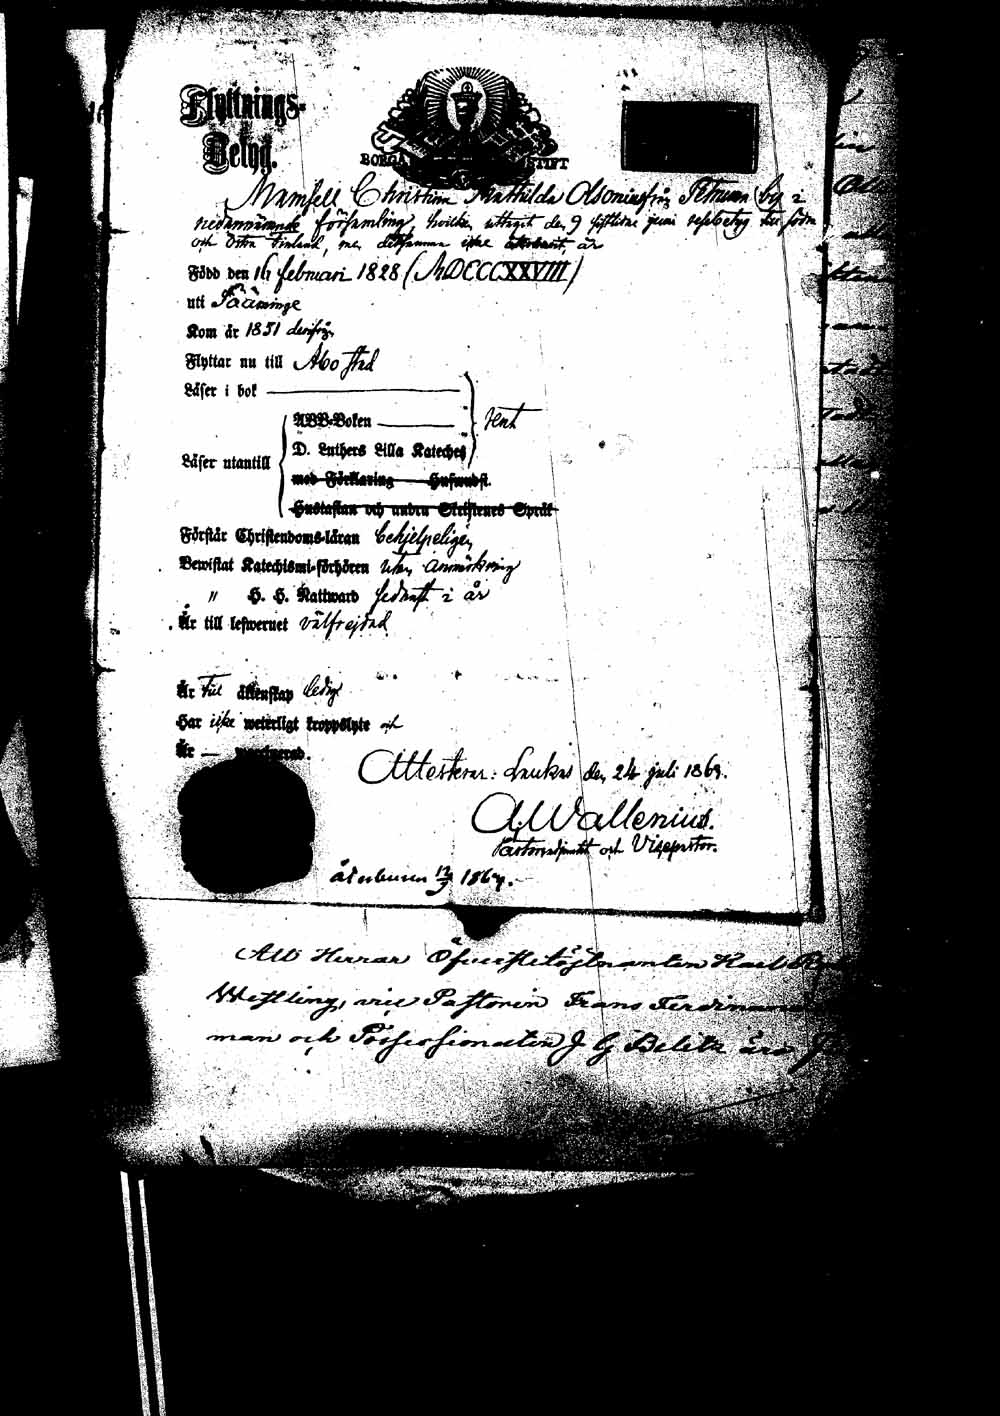 Flyttnings-
Betyg.
BORGÅ STIFT
Mamsell Christina Mathilda Alsonius från by i
nedannämnde församling, hvilken uttagit den 9 sistlidne juni resebetyg till södra
och östra Finland, men detsamma icke är
Född den 16 februari 1828 (MDCCCXXVIII)
uti Sääminge
Kom år 1851 derifrån
Flyttar nu till Åbo stad
Läser i bok
ABC-Boken rent
D. Luthers Lilla Kateches
Läser utantill
med Förklaring Hustafl.
Hustaflan och andra Skriftenes Språk
Förstår Christendoms-läran behjelpeligen
Bewistat Katechismi-förhören utan anmärkning
" H. H. Nattward sednast i år
Är till lefwernet välfrejdad
Är till äktenskap ledig
Har icke weterligt kroppslyte och
Är — waccinerad.
Attesterar: Laukas den 24 juli 1869.
A. Wallenius.
Pastorsadjunkt och Vicepastor.
1869.
Att Herrar Öfverstelöjtnanten Karl
Westling, vice Pastorin Frans Ferdinand
man och Possessionaten J G Belitz äro